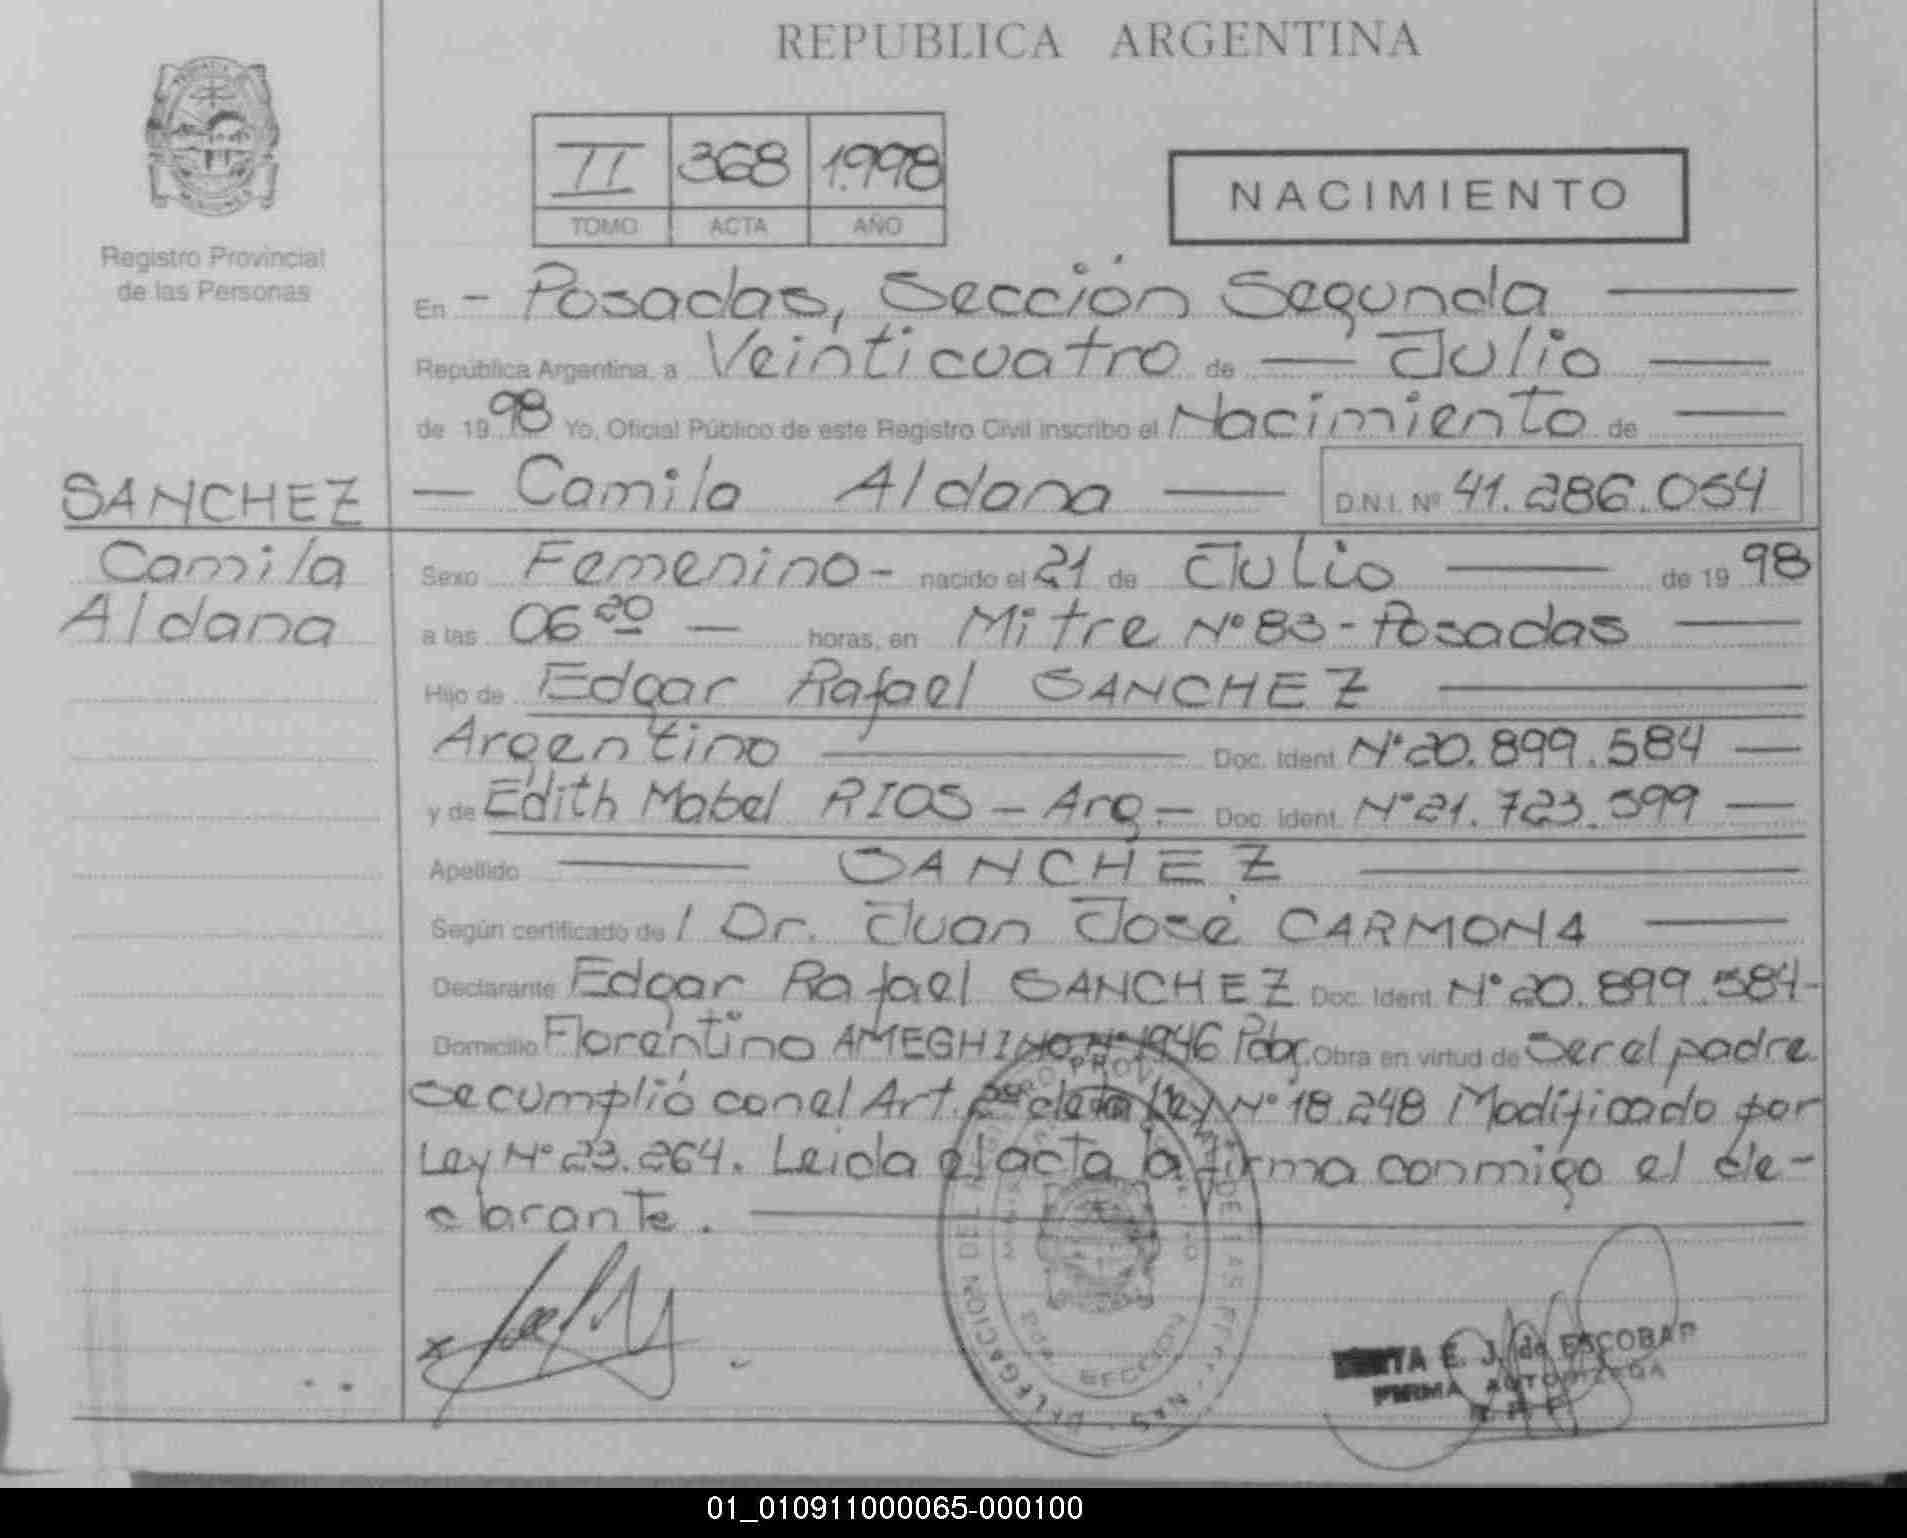 REPUBLICA ARGENTINA
II 368 1.998
TOMO ACTA AÑO
NACIMIENTO
Registro Provincial
de las Personas
En - Posadas, Sección Segunda
República Argentina, a Veinticuatro de Julio
de 19 98 Yo, Oficial Público de este Registro Civil inscribo el Nacimiento de
Camila Aldana D.N.I. Nº 41.286.054
SANCHEZ
Camila
Aldana
Sexo Femenino - nacido el 21 de Julio de 19 98
a las 06 20 horas, en Mitre Nº 83 - Posadas
Hijo de Edgar Rafael SANCHEZ
Argentino Doc. Ident. Nº 20.899.584
y de Edith Mabel RIOS - Arg. - Doc. Ident. Nº 21.723.599
Apellido SANCHEZ
Según certificado de / Dr. Juan José CARMONA
Declarante Edgar Rafael SANCHEZ Doc. Ident. Nº 20.899.584-
Domicilio Florentino AMEGHINO Nº 1946 Pdas. Obra en virtud de Ser el padre
se cumplió con el Art. 2º de la Ley Nº 18.248 Modificado por
Ley Nº 23.264. Leida el acta la firma conmigo el de-
clarante.
E. J. de ESCOBAR
FIRMA AUTORIZADA
01_010911000065-000100